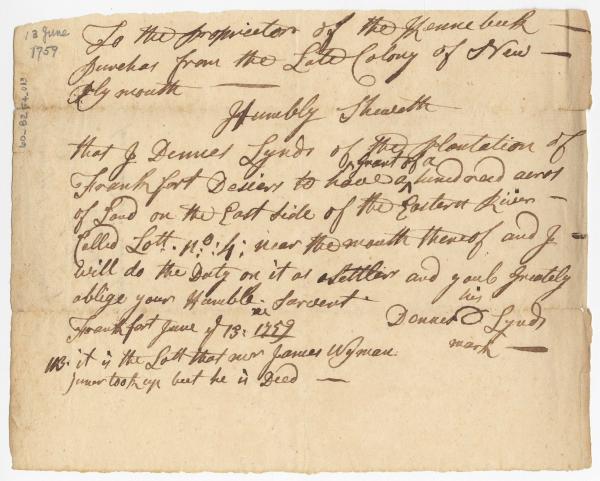 13 June
1759
60_B2_F4_013
To the proprietors of the Kennebeck
purchas from the Late Colony of New
Plymouth
Humbly Sheweth
that I Dennes Lynds of the Plantation of
Frankfort Desiers to have a grant of a hundread acros
of Land on the East side of the Eastern River
Called Lott. no: 4: near the mouth thereof and I
will do the Duty on it as Settler and youl Greately
oblige your Humble Servent
Frankfort June ye 13: 1759
his
Dennes D Lynds
mark
NB. it is the Lott that mr James Wyman
juner took up but he is Deed